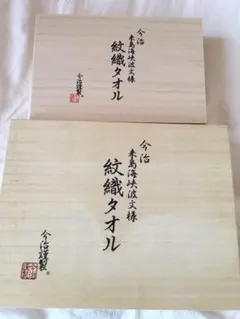 今治
来島海峡波文様
紋織タオル
今治謹製
今治
来島海峡波文様
紋織タオル
今治謹製